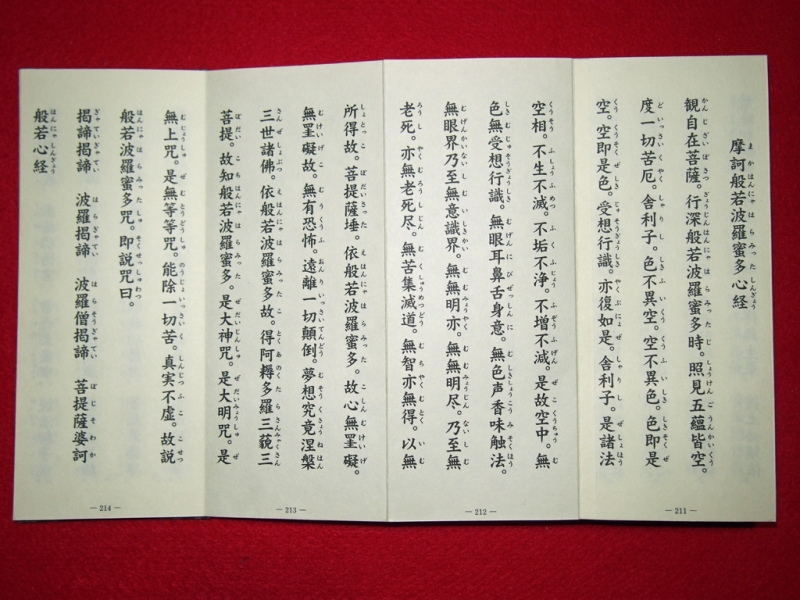 摩訶般若波羅蜜多心経
観自在菩薩。行深般若波羅蜜多時。照見五蘊皆空。
度一切苦厄。舎利子。色不異空。空不異色。色即是
空。空即是色。受想行識。亦復如是。舎利子。是諸法
— 211 —
空相。不生不滅。不垢不浄。不増不減。是故空中。無
色無受想行識。無眼耳鼻舌身意。無色声香味触法。
無眼界乃至無意識界。無無明亦。無無明尽。乃至無
老死。亦無老死尽。無苦集滅道。無智亦無得。以無
— 212 —
所得故。菩提薩埵。依般若波羅蜜多。故心無罣礙。
無罣礙故。無有恐怖。遠離一切顛倒。夢想究竟涅槃
三世諸佛。依般若波羅蜜多故。得阿耨多羅三藐三
菩提。故知般若波羅蜜多。是大神咒。是大明咒。是
— 213 —
無上咒。是無等等咒。能除一切苦。真実不虚。故説
般若波羅蜜多咒。即説咒曰。
揭諦揭諦　波羅揭諦　波羅僧揭諦　菩提薩婆訶
般若心経
— 214 —